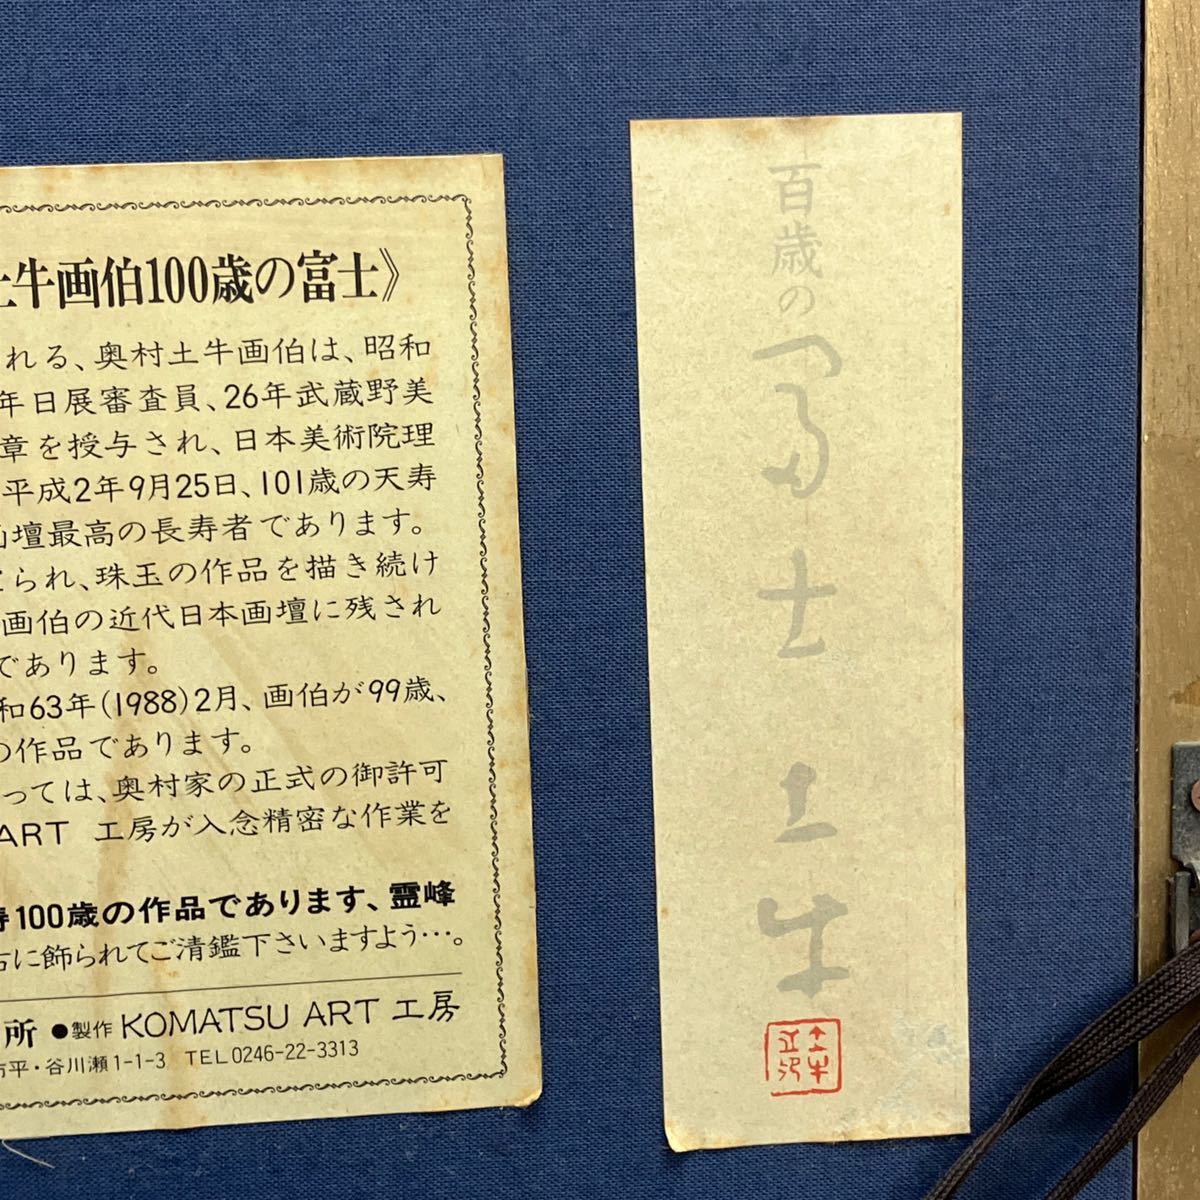 土牛画伯100歳の富士》
れる、奥村土牛画伯は、昭和
年日展審査員、26年武蔵野美
章を授与され、日本美術院理
平成2年9月25日、101歳の天寿
画壇最高の長寿者であります。
られ、珠玉の作品を描き続け
画伯の近代日本画壇に残され
であります。
和63年(1988)2月、画伯が99歳、
の作品であります。
っては、奥村家の正式の御許可
ART 工房が入念精密な作業を
寿100歳の作品であります、霊峰
右に飾られてご清鑑下さいますよう…。
所 ●製作 KOMATSU ART 工房
市平・谷川瀬1-1-3 TEL0246-22-3313
百歳の富士 土牛